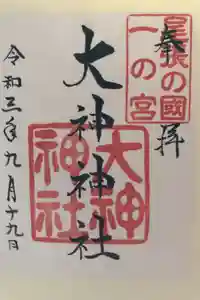 奉拝
尾張の國
一の宮
大神神社
大神
神社
令和三年九月十九日